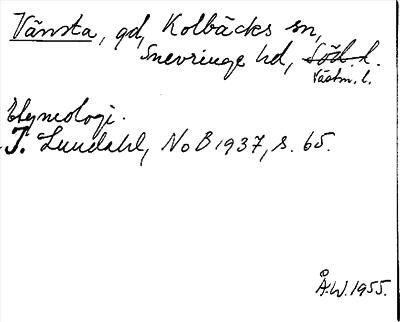 Vänsta, gd, Kolbäcks sn,
Snevringe hd, Söd. l.
Västm. l.
Etymologi.
I. Lundahl, NoB 1937, s. 65.
Å.W. 1955.